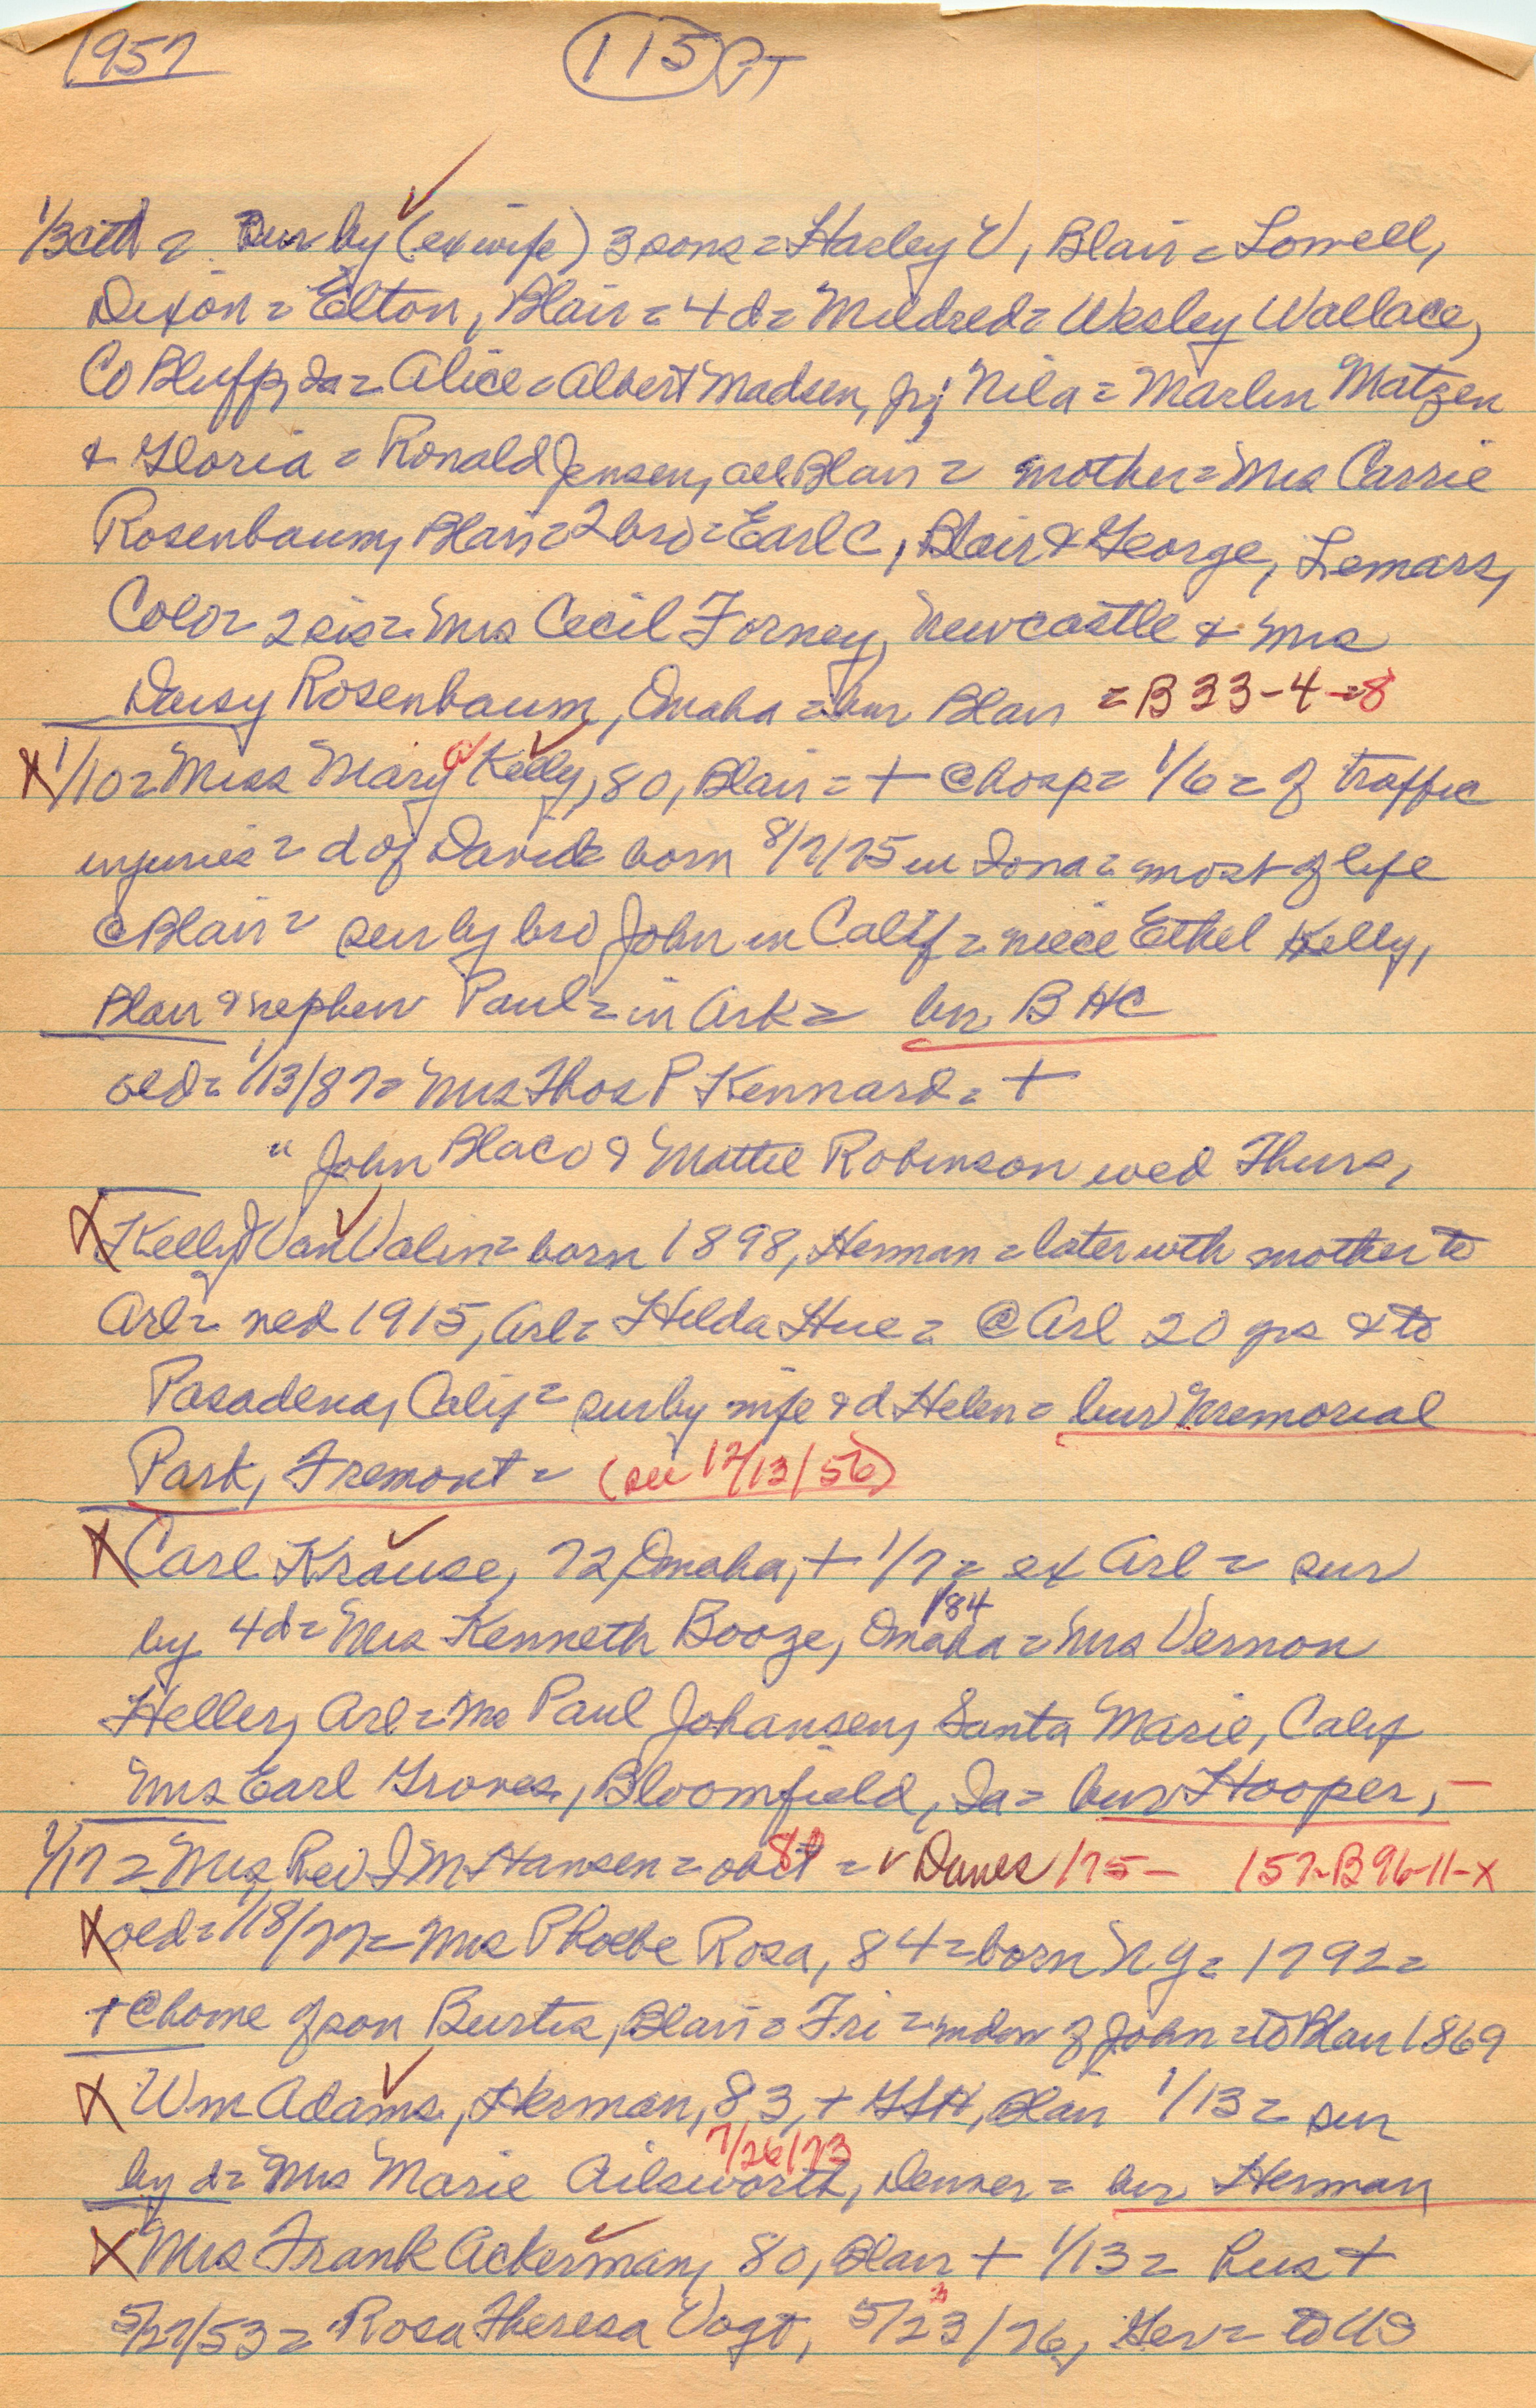 1957 115 PT
1/3 citd = sur by (ex wife) 3 sons = Harley V, Blair = Lowell,
Dixon = Elton, Blair = 4 d = Mildred = Wesley Wallace,
Co Bluffs, Ia = Alice = Albert Madsen, Jr; Nila = Marlin Matzen
& Gloria = Ronald Jensen, all Blair = mother = Mrs Carrie
Rosenbaum, Blair = 2 bro = Earl C, Blair & George, Lemars,
Colo = 2 sis = Mrs Cecil Forney, Newcastle & Mrs
Daisy Rosenbaum, Omaha = bur Blair = B 33-4-8
X 1/10 = Miss Mary a Kelly, 80, Blair = + @ hosp = 1/6 = of traffic
injuries = d of David born 8/7/75 in Iowa = most of life
@ Blair = sur by bro John in Calif = niece Ethel Kelly,
Blair & nephew Paul = in Ark = bur B HC
old = 1/13/87 = Mrs Thos P Kennard = +
" John Blaco & Mattie Robinson wed Thurs,
X Kelly J Van Valin = born 1898, Herman = later with mother to
Arl = wed 1915, Arl = Hilda Hue = @ Arl 20 yrs & to
Pasadena, Calif = sur by wife & d Helen = bur Memorial
Park, Fremont = (see 12/13/56)
X Carl Krause, 72, Omaha, + 1/7 = ex Arl = sur
by 4 d = Mrs Kenneth Booze, Omaha = Mrs Vernon
184
Heller, Arl = Mrs Paul Johansen, Santa Marie, Calif
Mrs Earl Groves, Bloomfield, Ia = bur Hooper, -
1/17 = Mrs Rev I M Hansen = obit = v Danes 175 - 157-B96-11-x
X old = 1/18/77 = Mrs Phoebe Rosa, 84 = born N Y = 1792 =
+ @ home of son Burtis, Blair = Fri = widow of John = to Blair 1869
X Wm Adams, Herman, 83, + , Blair 1/13 = sur
7/26/73
by d = Mrs Marie Ailsworth, Denver = bur Herman
X Mrs Frank Ackerman, 80, Blair + 1/13 = hus +
5/27/53 = Rosa Theresa Vogt, 5/23/76, Ger = to US